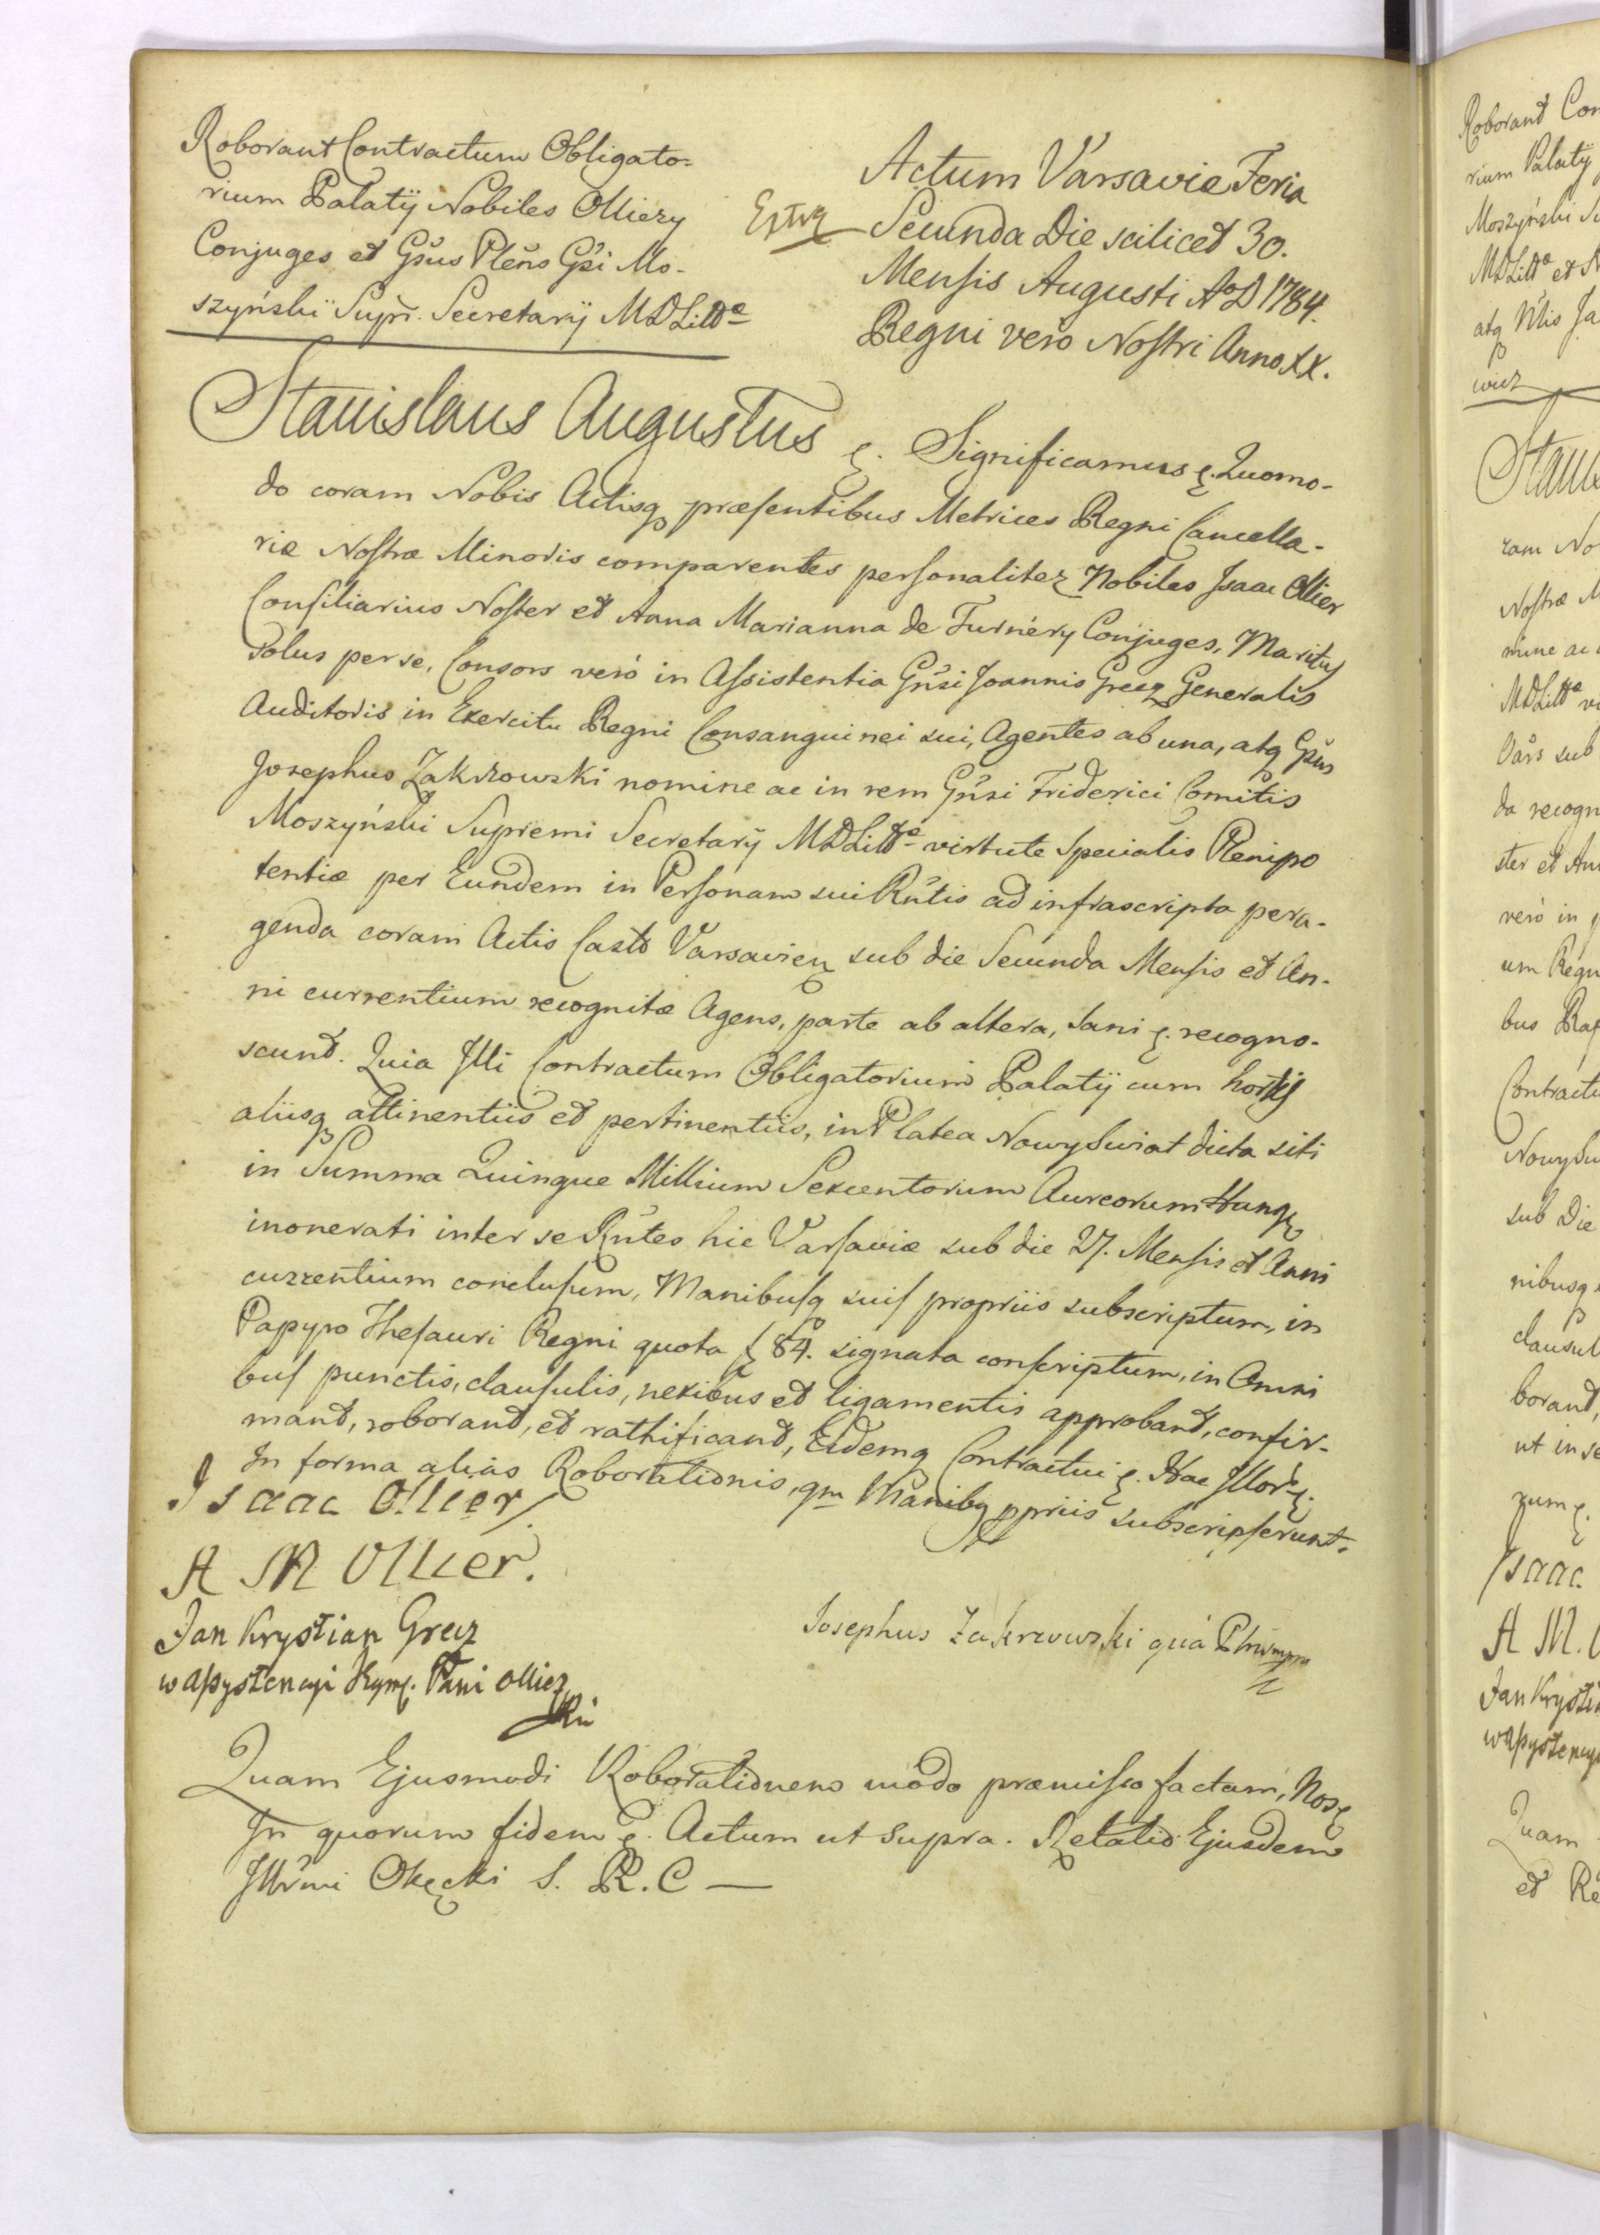 Roborant Contractum Obligato=
rium Palatÿ Nobiles Olliery
Conjuges et Gsus Plens Gsi Mo-
szyński Supr. Secretarÿ MDLittæ
Actum Varsaviæ Feria
Secunda Die scilicet 30.
Mensis Augusti AoD 1784.
Regni vero Nostri Anno XX.
Stanislaus Augustus &. Significamus &. Quomo-
do coram Nobis Actisq præsentibus Metrices Regni Cancella-
riæ Nostræ Minoris comparentes personaliter Nobiles Isaac Ollier
Consiliarius Noster et Anna Marianna de Turnery Conjuges, Maritus
solus per se, Consors veró in Assistentia Gnsi Joannis Grecz Generalis
Auditoris in Exercitu Regni Consanguinei sui, Agentes ab una, atq Gsus
Josephus Zakrzowski nomine ac in rem Gnsi Friderici Comitis
Moszyński Supremi Secretarÿ MDLittæ virtute specialis Plenipo
tentiæ per Eundem in Personam sui Rntis ad infrascripta pera-
genda coram Actis Castr Varsavien sub die Secunda Mensis et An-
ni currentium recognitæ Agens, parte ab altera, Sani &. recogno-
scunt. Quia Illi Contractum Obligatorium Palatÿ cum hortis
aliisq attinentiis et pertinentiis, in Platea Nowy Swiat dicta siti
in Summa Quinque Millium Sexcentorum Aureorum Hung
inonerati inter se Rntes hic Varsaviæ sub die 27. Mensis et Anni
currentium conclusum, Manibusq suis propriis subscriptum, in
Papyro Thesauri Regni quota f 84. signata conscriptum, in Omni
bus punctis, clausulis, nexibus et ligamentis approbant, confir-
mant, roborant, et rathificant, Eidemq Contractui &. Hac Illor &.
In forma alias Roborationis, qm Manibq ppriis subscripserunt.
Isaac Ollier
A M Ollier.
Jan Krystian Grecz
w assystencyi Jeymc. Pani Ollier
Josephus Zakrzowski quá
Quam Ejusmodi Roborationem modo præmisso factam, Nos &
In quorum fidem &. Actum ut supra. Relatio Ejusdem
Illrmi Okęcki S. R. C —
Roborant Con
rium Palatÿ
Moszyński Su
MDLittæ et
atq Nlis Ja
wicz
Stanis
ram No
Nostræ M
mine ac
MDLittæ vi
sub
da recogn
ster et Ann
veró in
um Regn
bus
Contractu
Nowy Sw
sub Die
nibusq
clausul
borant,
ut in se
rum &.
Isaac
A M. O
Jan Krysti
w assystency
Quam
et Re